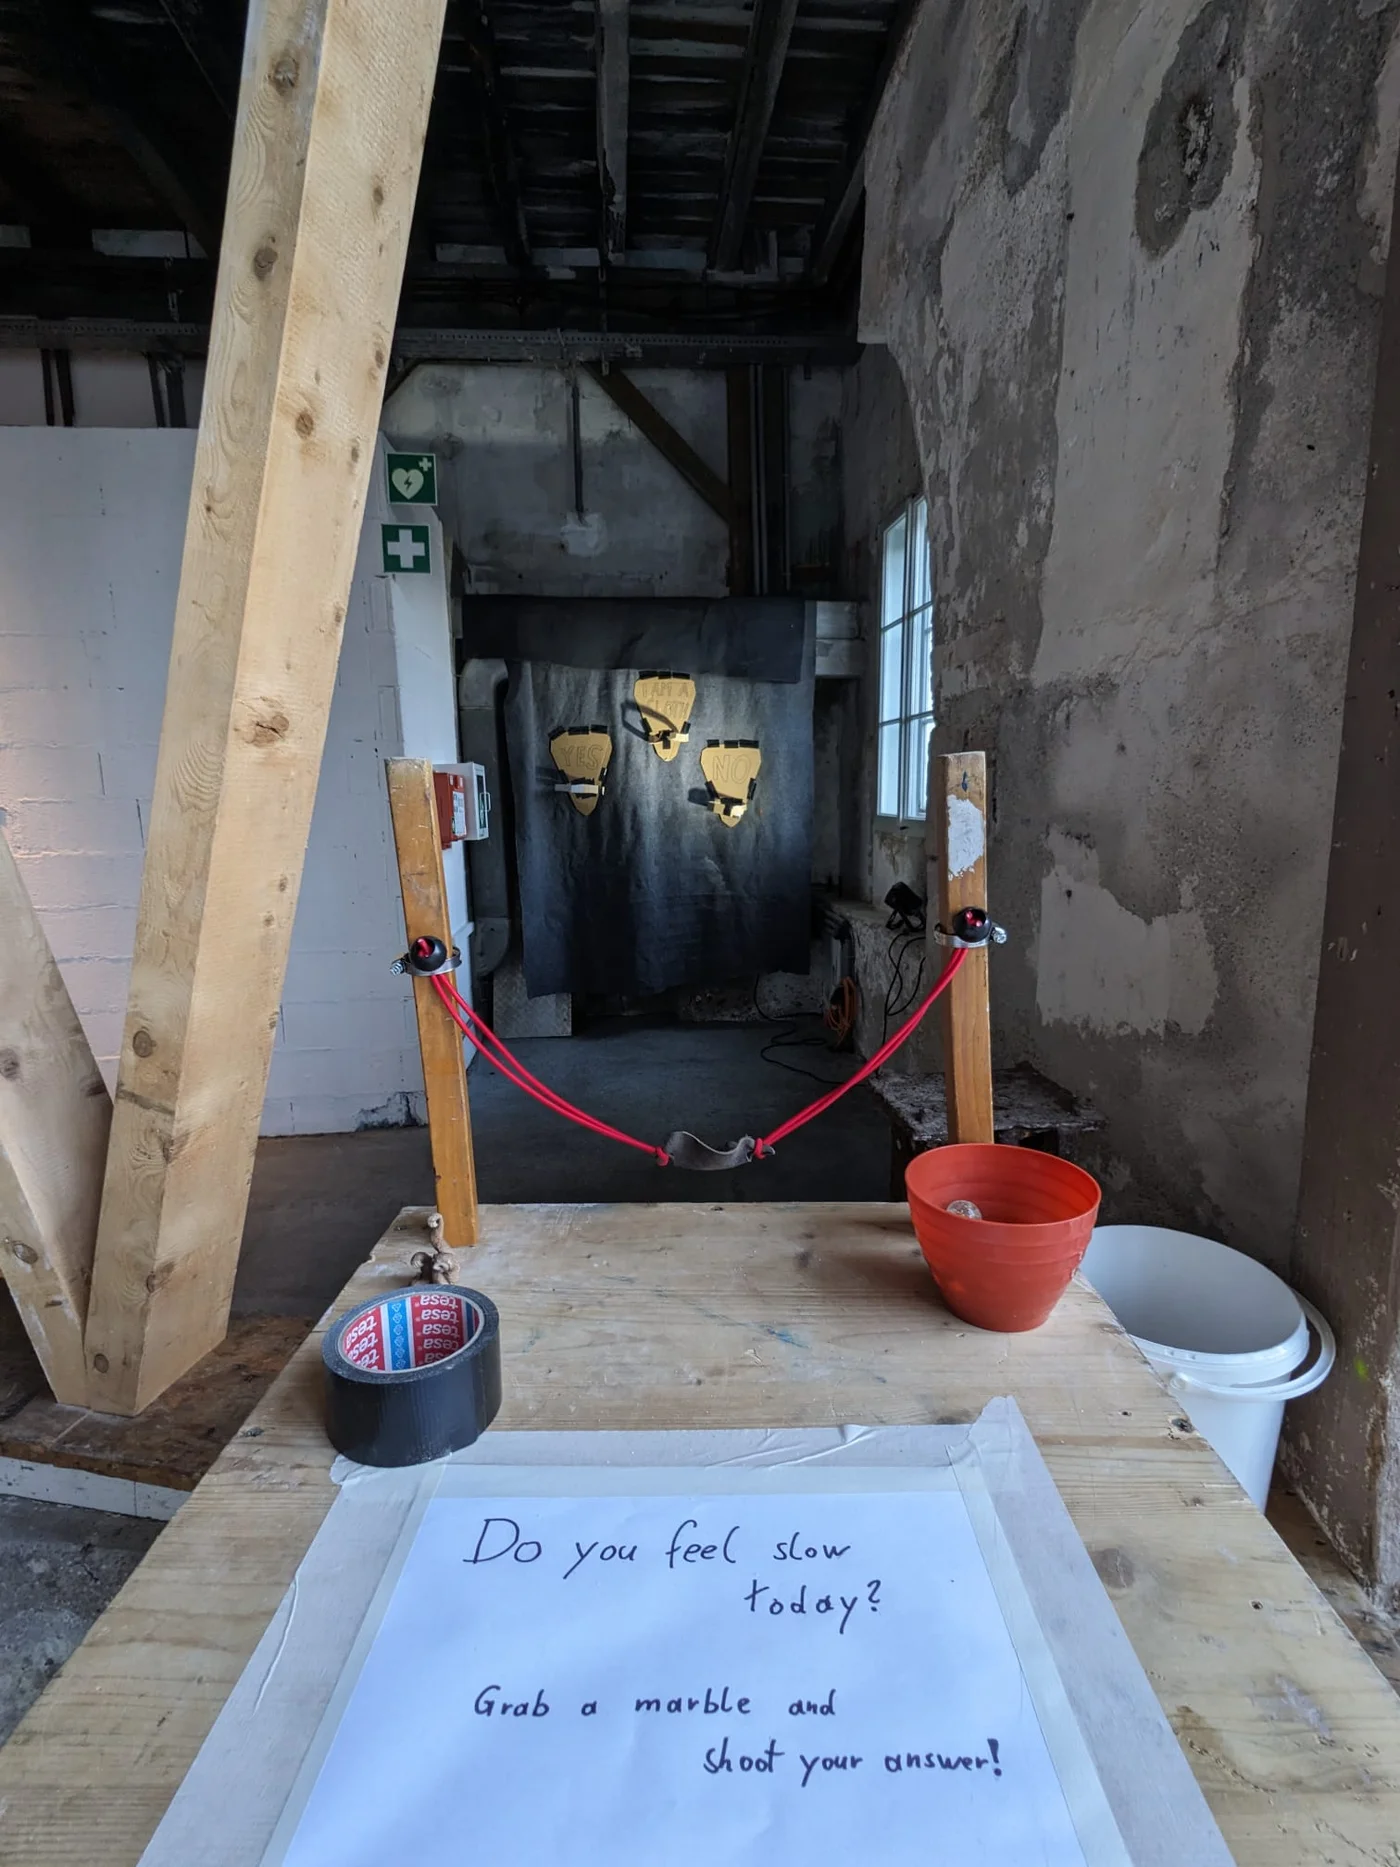 I AM A
YES
NO
tesa
tesa
tesa
tesa
tesa
tesa
Do you feel slow
today?
Grab a marble and
shoot your answer!